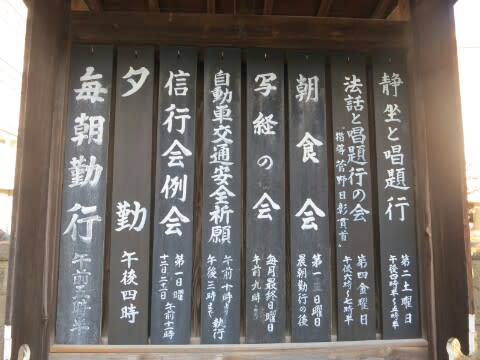 静坐と唱題行
第二土曜日
午後四時半〜五時半
法話と唱題行の会
指導 菅野日彰貫首
第四金曜日
午後六時〜七時半
朝食会
第一日曜日
晨朝勤行の後
写経の会
毎月最終日曜日
午前九時
自動車交通安全祈願
午前十時より
午後三時まで
執行
信行会例会
第一日曜
十二日二十二日
午前十一時
夕勤
午後四時
毎朝勤行
午前
時半